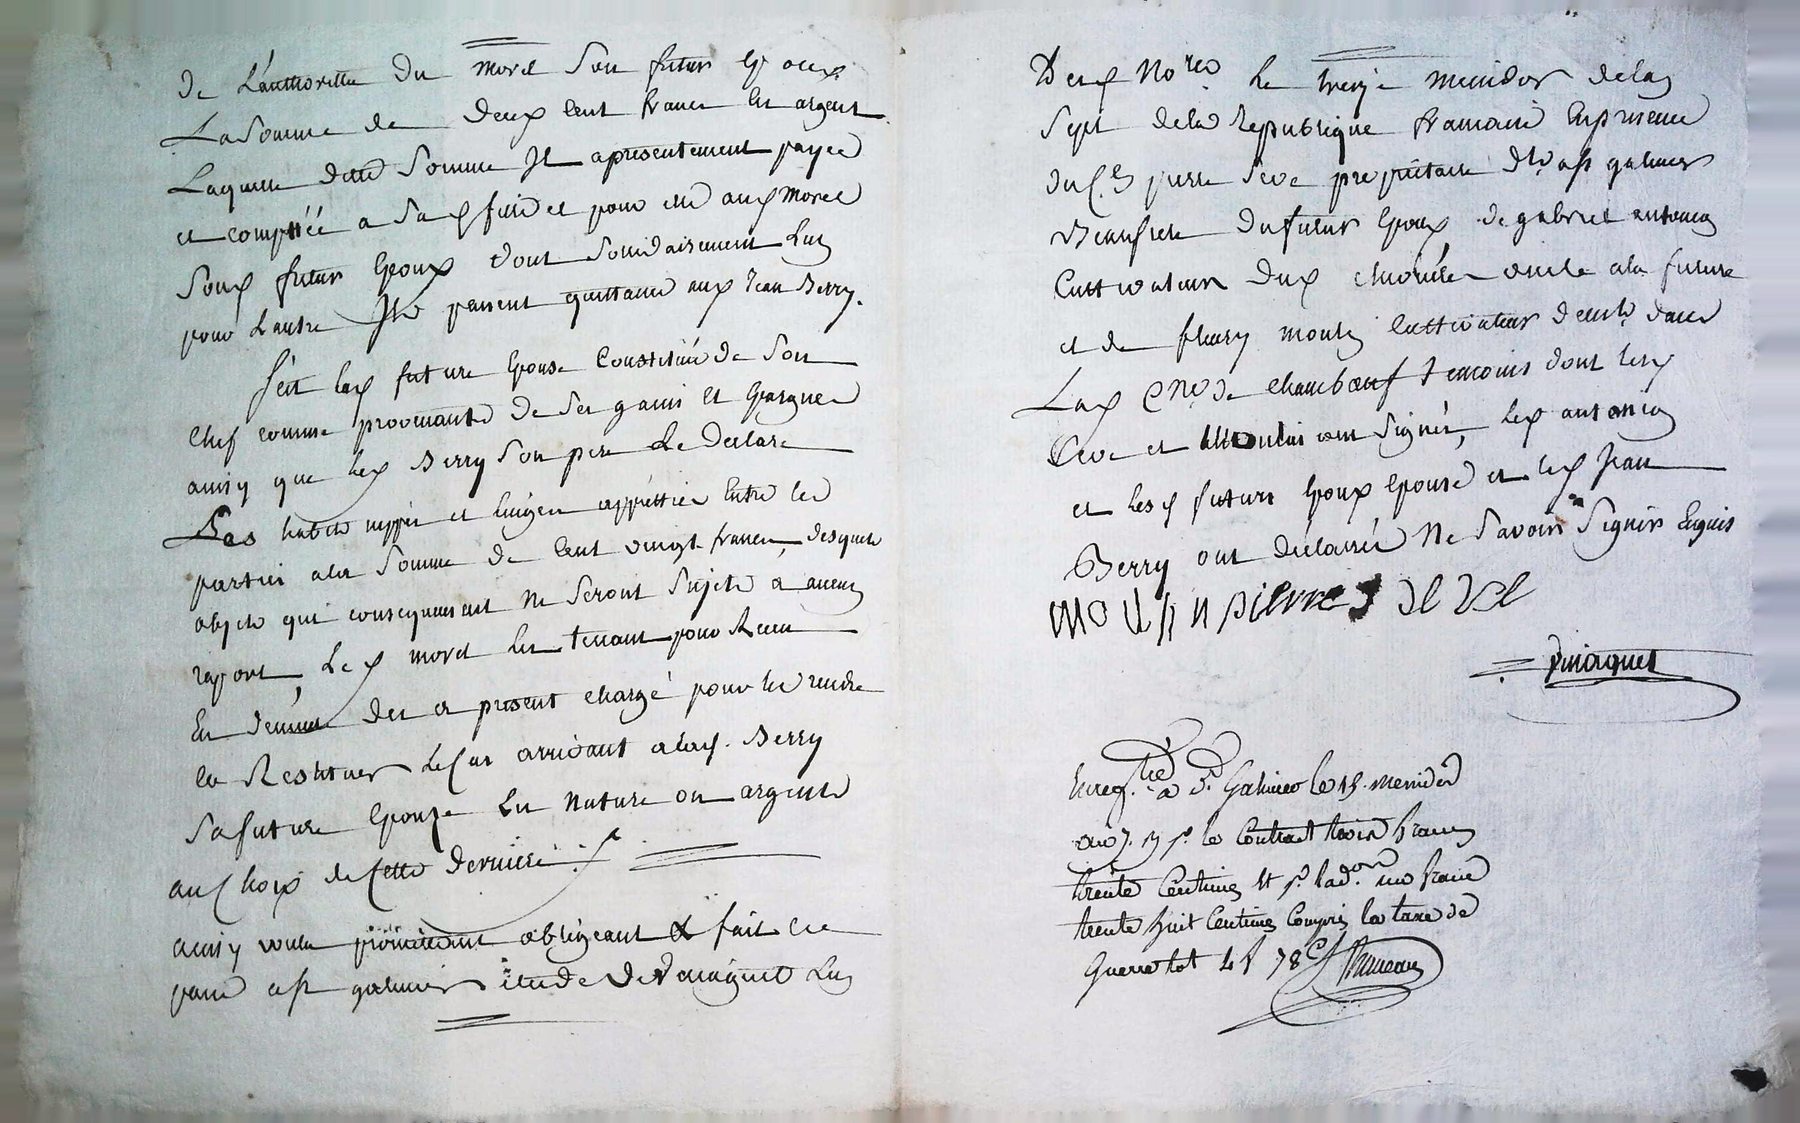 de L'authoritte du morel son futur Epoux
La Somme de deux Cent francs En argent
Laquelle ditte Somme Il a presentement payée
et comptée a sa fille et pour elle aux morel
Son futur Epoux dont Solidairement Lun
pour Lautre Ils passent quittance aux Jean Berry.
Sest lax future Epouse Constituée de Son
Chef comme provenants de Ses gains Et Epargnes
ainsy que lex Berry Son pere Le declare
Les habits nippes et linges apprétties Entre les
parties a la Somme de Cent vingt francs, desquels
objets qui consequemment Ne Seront Sujets a aucun
raport Lex morel Les tenant pour Recu
En demeure des a present chargé pour les rendre
et Restituer Le Cas arrivant a lax. Berry
Sa future Epouze En Nature ou argents
au Choix de Cette derniere
ainsy voulu promettant obligeant & fait Et
passé a St galmier Etude de Pmaguet Lun
Des Nores Le treize messidor de lan
Sept de la Republique francaise En presence
du C.en pierre Seve propriétaire de St galmier
Beaufrere du futur Epoux de gabriel antonin
Cultivateur dux oncle a la future
et de fleury moulin Cultivateur dans
Lax Cne de Chambœuf temoins dont lesx
Seve et Moulin ont Signés, lex antonin
et lesx futurs Epoux Epouse et lex Jean
Berry ont déclarré Ne Savoir Signer Enquis
moulin pierre seve
Pmaguet
Enreg.tré a St Galmier le 15. messidor
an 7. R pr. le Contract trois francs
trente Centimes Et pr. lad.on un franc
trente huit Centimes Compris la taxe de
Guerre tot 4 f 78 C